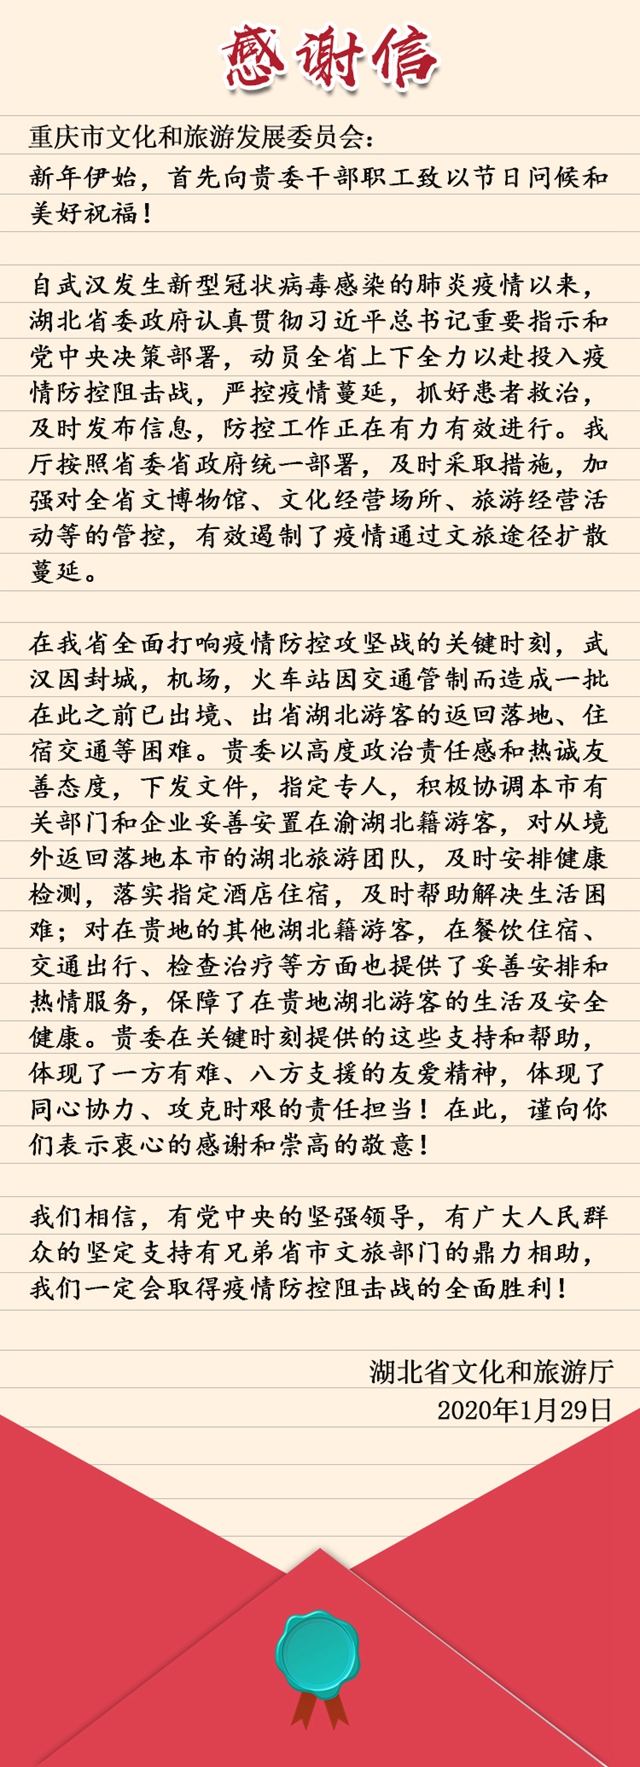 感谢信
重庆市文化和旅游发展委员会：
新年伊始，首先向贵委干部职工致以节日问候和
美好祝福！
自武汉发生新型冠状病毒感染的肺炎疫情以来，
湖北省委政府认真贯彻习近平总书记重要指示和
党中央决策部署，动员全省上下全力以赴投入疫
情防控阻击战，严控疫情蔓延，抓好患者救治，
及时发布信息，防控工作正在有力有效进行。我
厅按照省委省政府统一部署，及时采取措施，加
强对全省文博物馆、文化经营场所、旅游经营活
动等的管控，有效遏制了疫情通过文旅途径扩散
蔓延。
在我省全面打响疫情防控攻坚战的关键时刻，武
汉因封城，机场，火车站因交通管制而造成一批
在此之前已出境、出省湖北游客的返回落地、住
宿交通等困难。贵委以高度政治责任感和热诚友
善态度，下发文件，指定专人，积极协调本市有
关部门和企业妥善安置在渝湖北籍游客，对从境
外返回落地本市的湖北旅游团队，及时安排健康
检测，落实指定酒店住宿，及时帮助解决生活困
难；对在贵地的其他湖北籍游客，在餐饮住宿、
交通出行、检查治疗等方面也提供了妥善安排和
热情服务，保障了在贵地湖北游客的生活及安全
健康。贵委在关键时刻提供的这些支持和帮助，
体现了一方有难、八方支援的友爱精神，体现了
同心协力、攻克时艰的责任担当！在此，谨向你
们表示衷心的感谢和崇高的敬意！
我们相信，有党中央的坚强领导，有广大人民群
众的坚定支持有兄弟省市文旅部门的鼎力相助，
我们一定会取得疫情防控阻击战的全面胜利！
湖北省文化和旅游厅
2020年1月29日